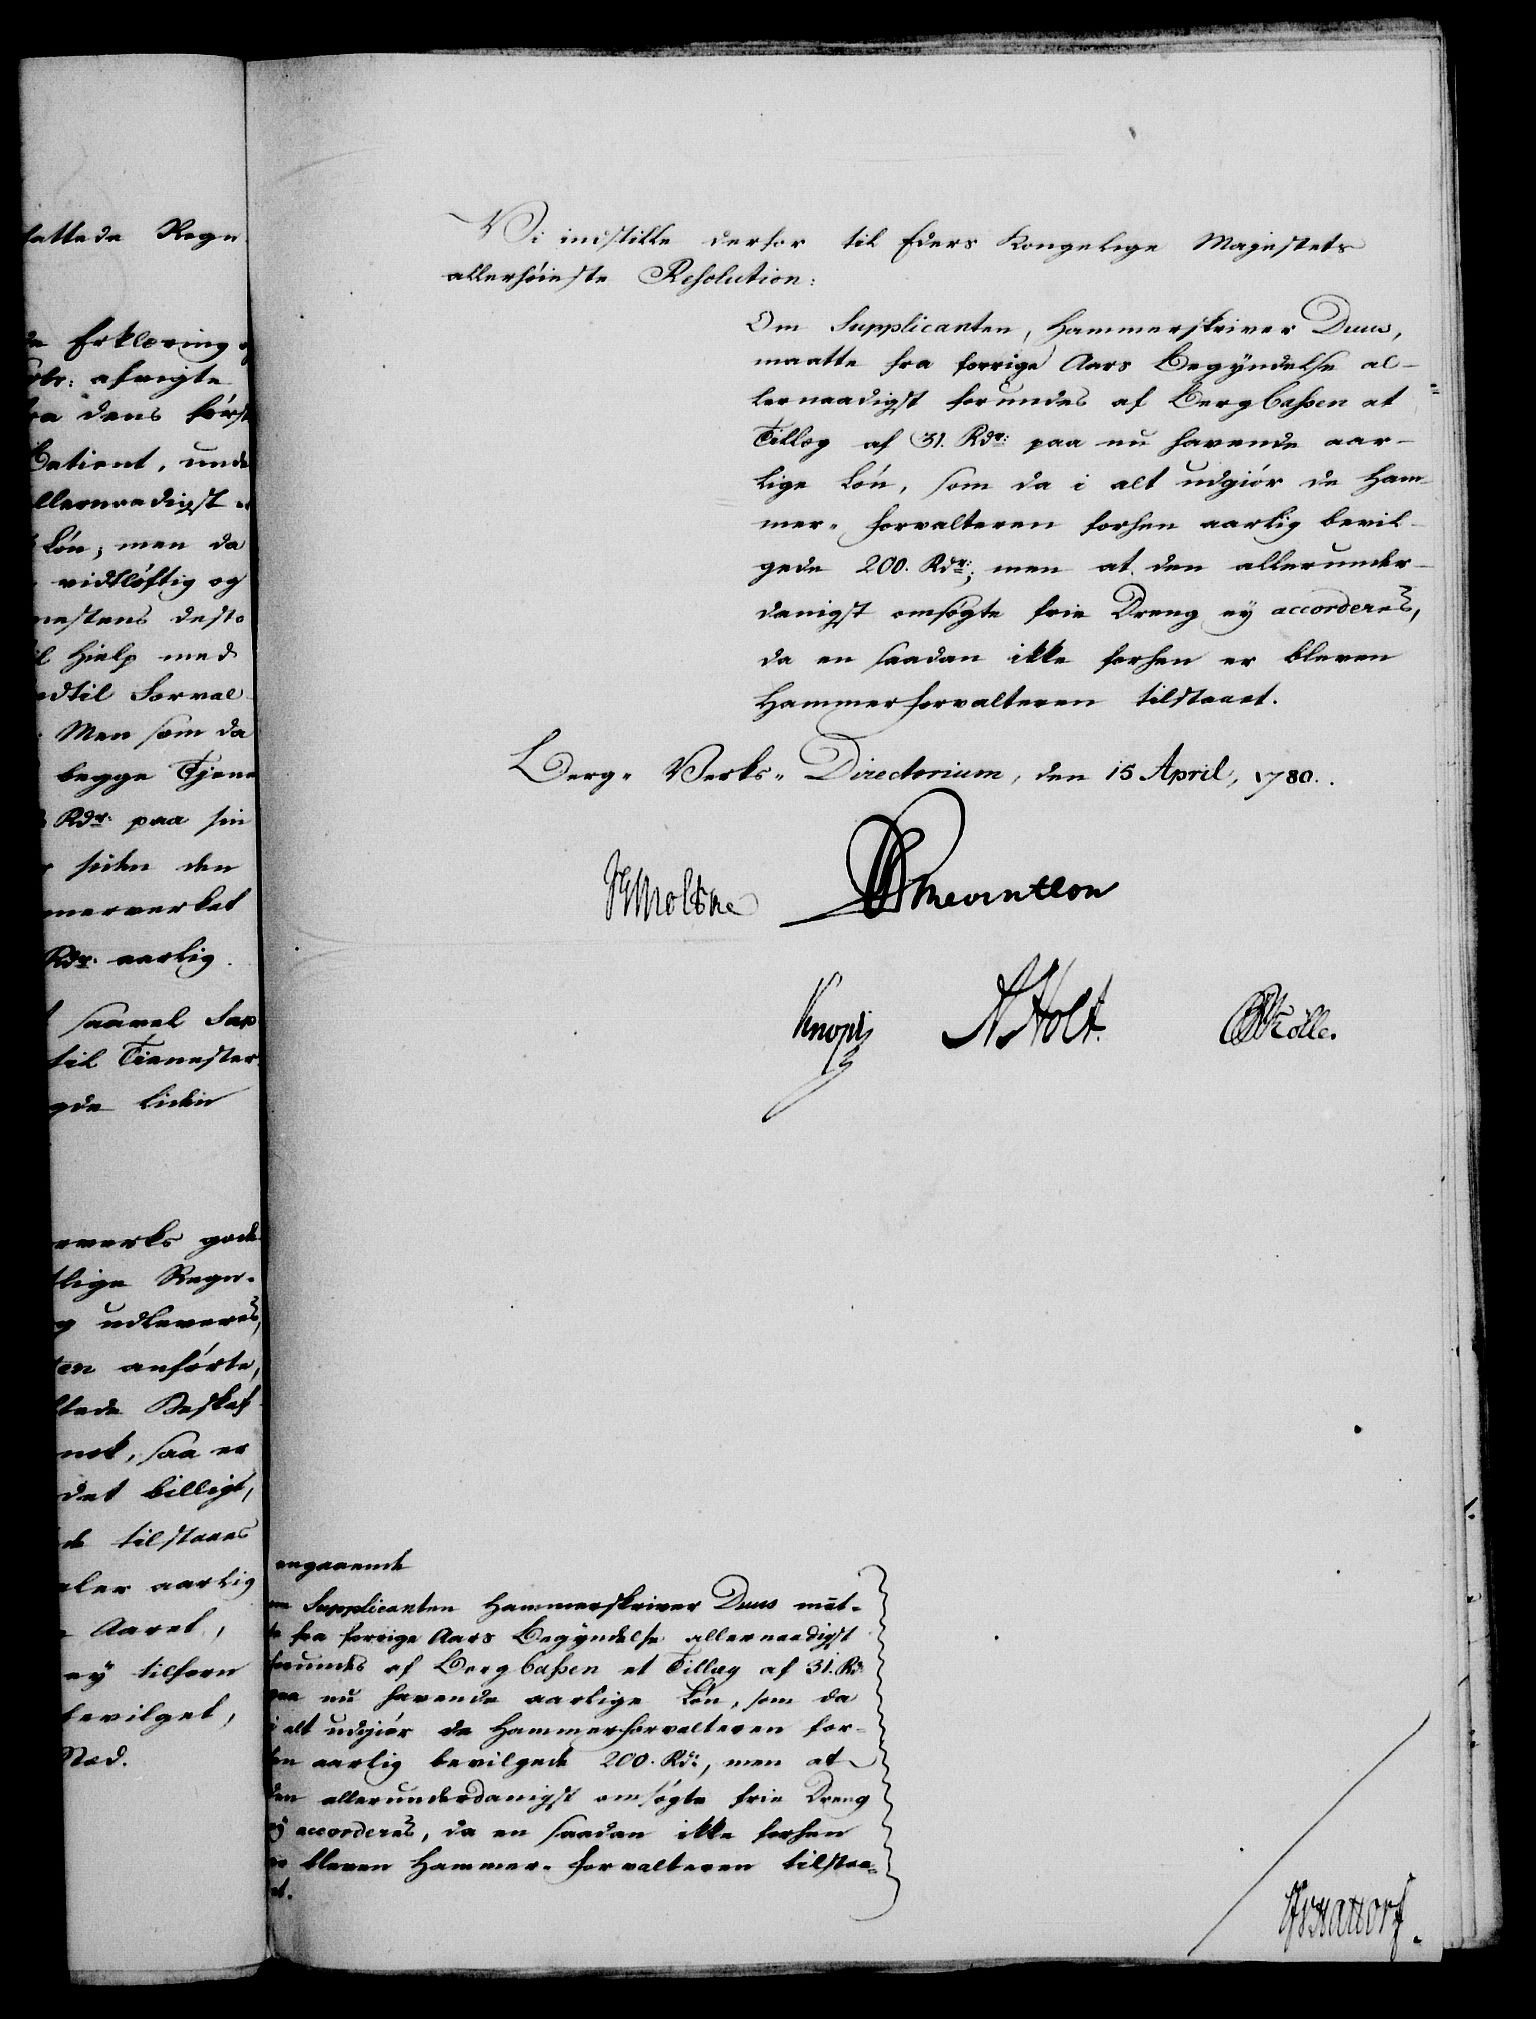 fattede Regn
Erklæring
afvigte
dens først
Catient, unde
allernaadigst
Løn; men da
vidtløftig og
nestens desto
Hielp med
indtil Forval-
Men som da
begge Tjene
Rdr: paa sin
siden den
merverket
Rdr: aarlig.
saavel Sup
til Tienester
liden
verks gode
lige Regn-
udleveres,
anførte,
Beskaf-
nok, saa er
det billigt,
tilstaaes
aarlig
Aaret,
ey tilforn
bevilget,
Vi indstille derfor til Eders Kongelige Majestets
allerhøieste Resolution:
Om Supplicanten, Hammerskriver Duus,
maatte fra forrige Aars Begyndelse al-
lernaadigst forundes af Bergcassen et
Tillæg af 31. Rdr: paa nu havende aar-
lige Løn, som da i alt udgiør de Ham-
mer-forvalteren forhen aarlig bevil-
gede 200. Rdr:; men at den allerunder-
danigst omsøgte frie Dreng ey accorderes,
da en saadan ikke forhen er bleven
Hammerforvalteren tilstaaet.
Berg-Verks-Directorium, den 15 April, 1780.
Moltke
Reventlow
Knoph
Holt.
angaaende
Supplicanten Hammerskriver Duus maat-
te fra forrige Aars Begyndelse allernaadigst
forundes af Bergcassen et Tillæg af 31. Rd
paa nu havende aarlige Løn, som da
i alt udgiør de Hammerforvalteren for-
hen aarlig bevilgede 200. Rdr, men at
den allerunderdanigst omsøgte frie Dreng
ey accorderes, da en saadan ikke forhen
er bleven Hammer-forvalteren tilstaa-
et.